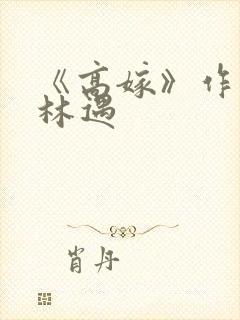 《高嫁》作
林遇
肖丹